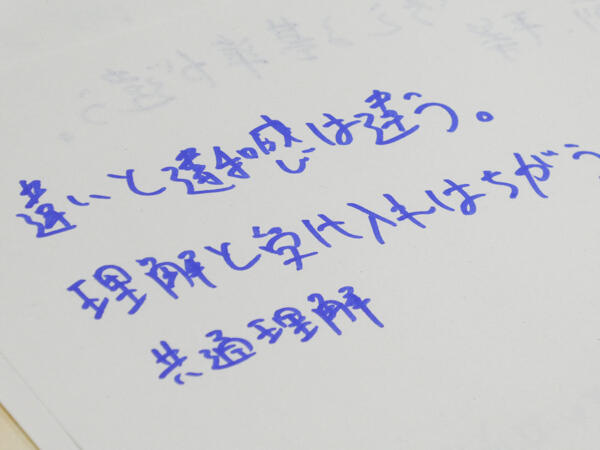 違いと違和感は違う。
理解と受け入れはちがう
共通理解